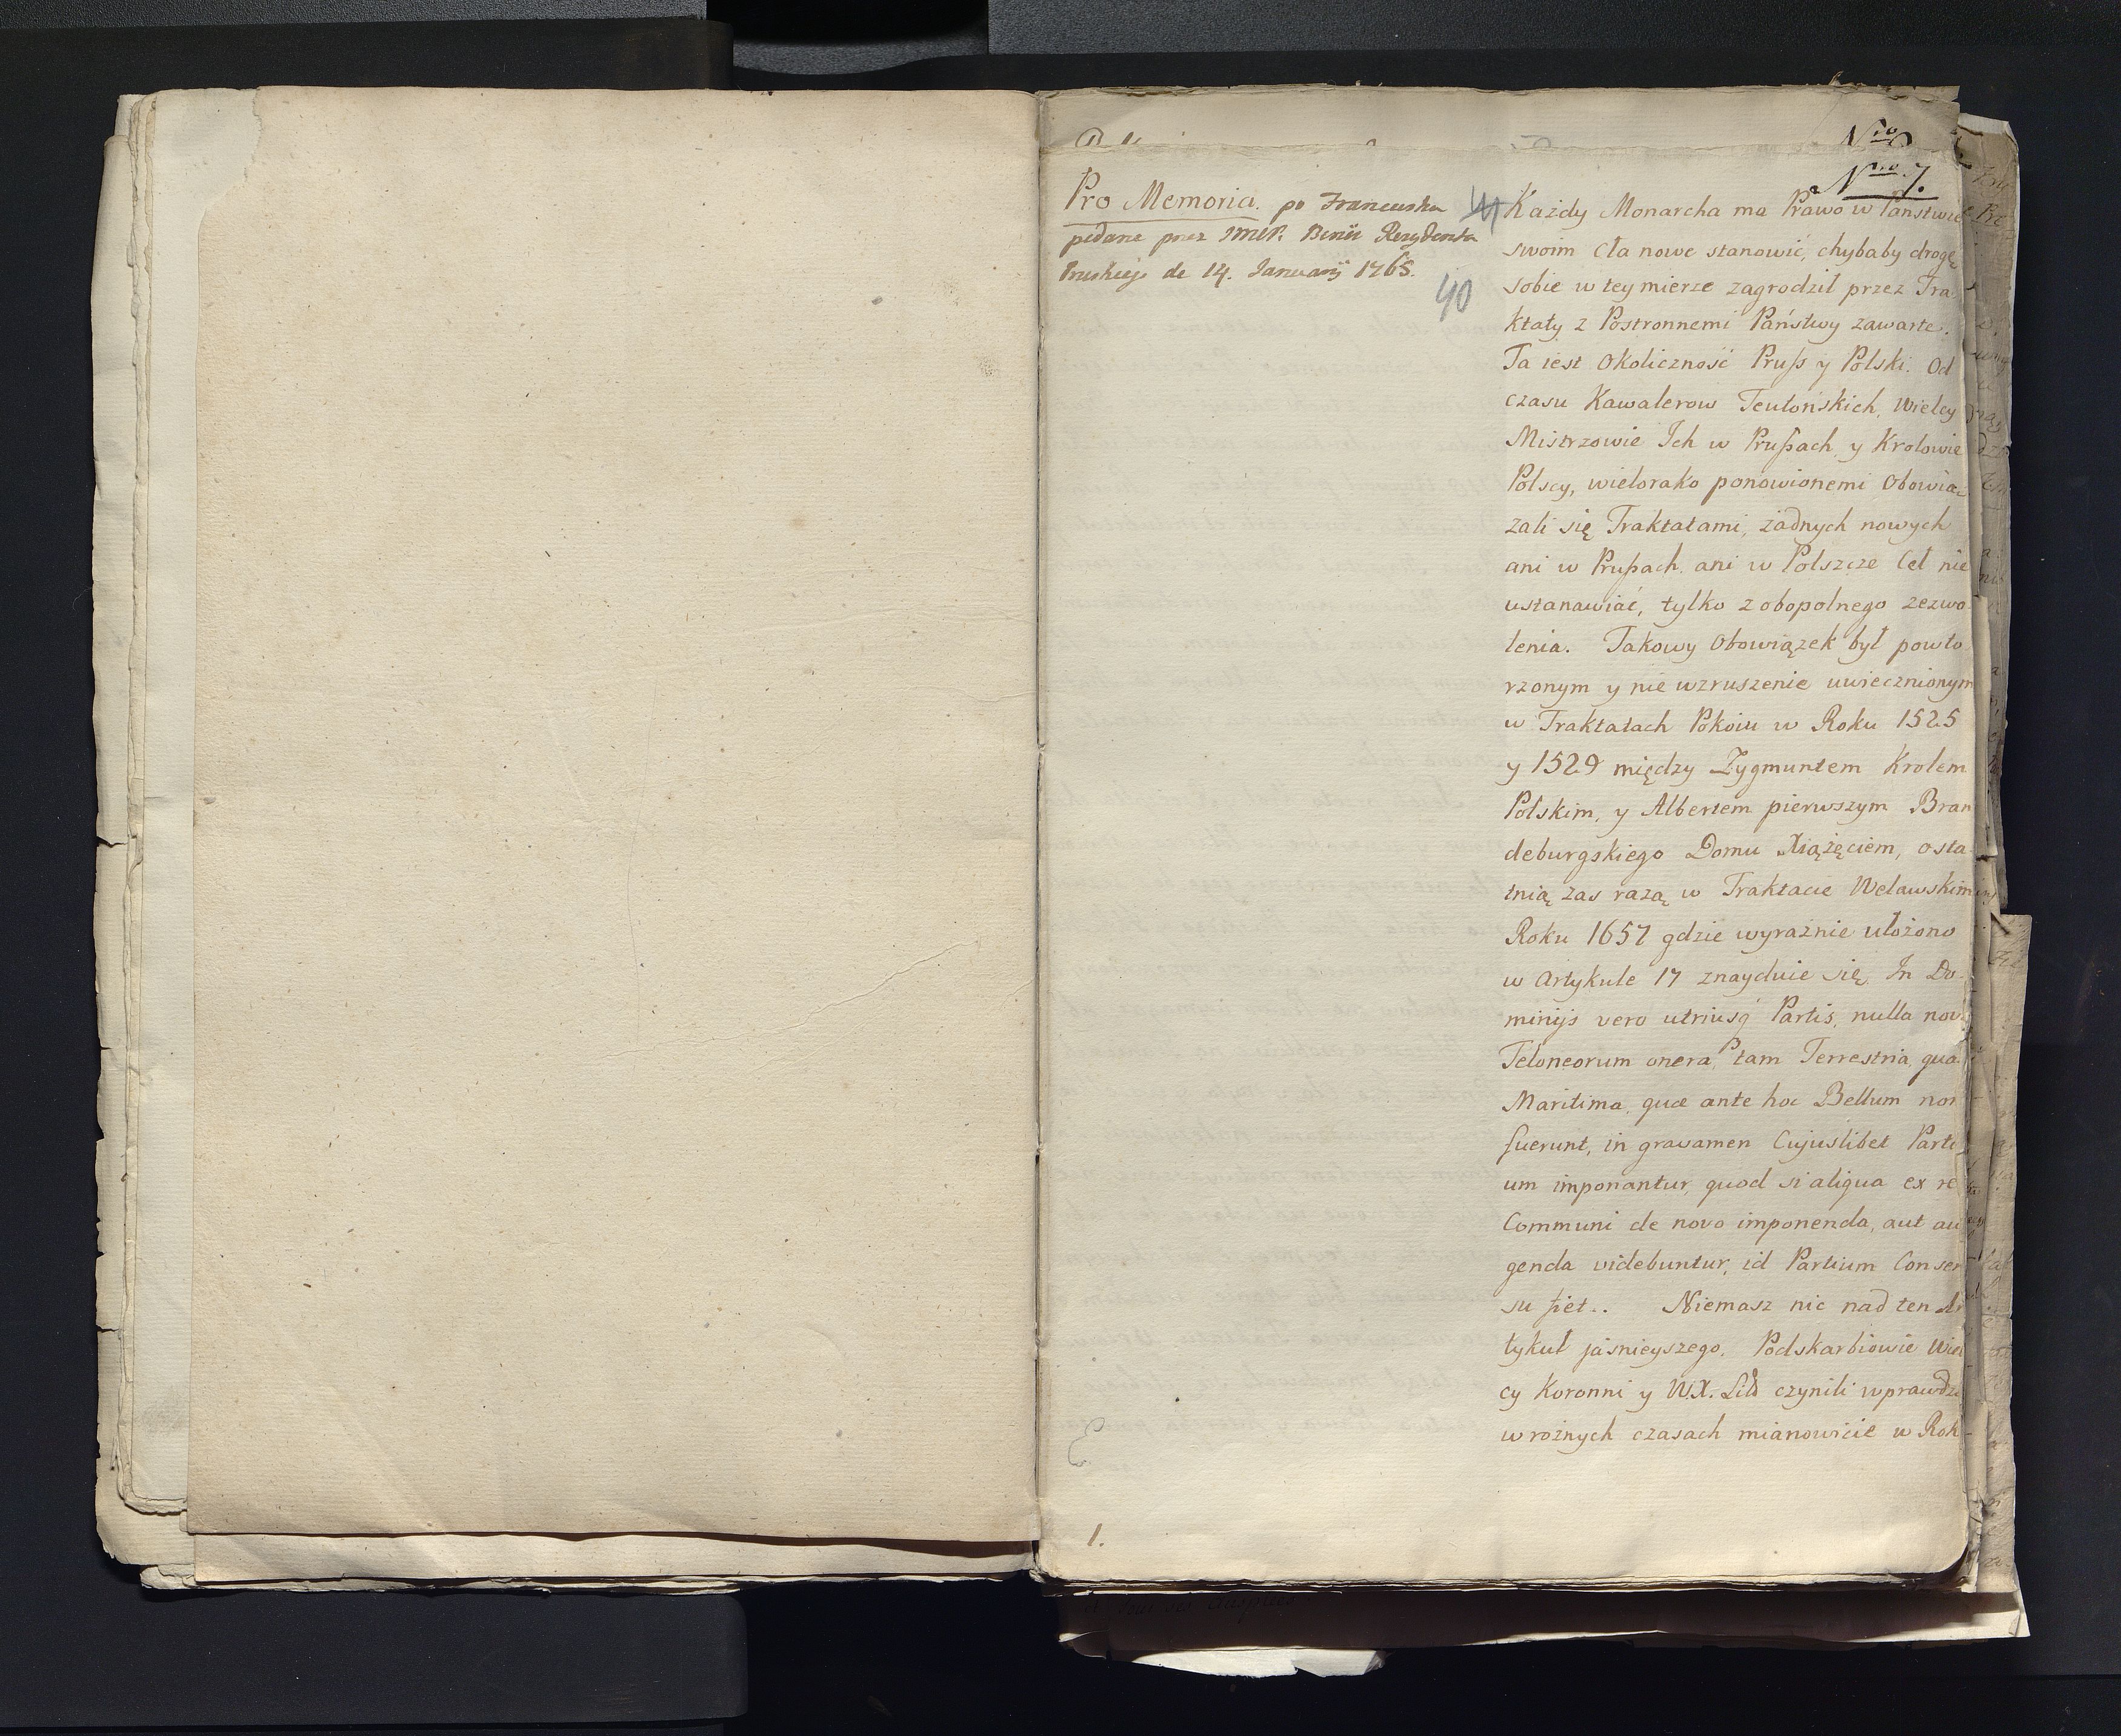 Nro
Nro 7.
Pro Memoria. po Francusku
podane przez JMCP. Benit Rezydenta
Pruskiego de 14. Januarij 1765.
40
Każdy Monarcha ma Prawo w Państwie
swoim Cła nowe stanowić, chybaby drogę
sobie w tey mierze zagrodził przez Tra-
ktaty z Postronnemi Państwy zawarte.
Ta iest Okoliczność Pruſs y Polski. Od
czasu Kawalerow Teutońskich, Wielcy
Mistrzowie Ich w Prußach, y Krolowie
Polscy, wielorako ponowionemi Obowią-
zali się Traktatami, żadnych nowych
ani w Prußach, ani w Polszcze Ceł nie
ustanawiać, tylko z obopolnego zezwo
lenia. Takowy Obowiązek był powto
rzonym y nie wzruszenie uwiecznionym
w Traktatach Pokoiu w Roku 1525
y 1529 między Zygmuntem Krolem
Polskim, y Albertem pierwszym Bran
deburgskiego Domu Xiążęciem, osta
tnią zas razą w Traktacie Welawskim
Roku 1657 gdzie wyraźnie ułożono
w Artykule 17 znayduie się. In Do-
minijs vero utriusq́ Partis, nulla nov
Teloneorum onera, tam Terrestria, qua
Maritima, quæ ante hoc Bellum non
fuerunt, in gravamen Cujuslibet Parti
um imponantur, quod si aliqua ex re
Communi de novo imponenda, aut au
genda videbuntur, id Partium Consen
su fiet.. Niemasz nic nad ten Ar
tykuł jaśnieyszego. Podskarbiowie Wiel
cy Koronni y W.X. Litt czynili wprawdzi
w rożnych czasach mianowicie w Rok
1.